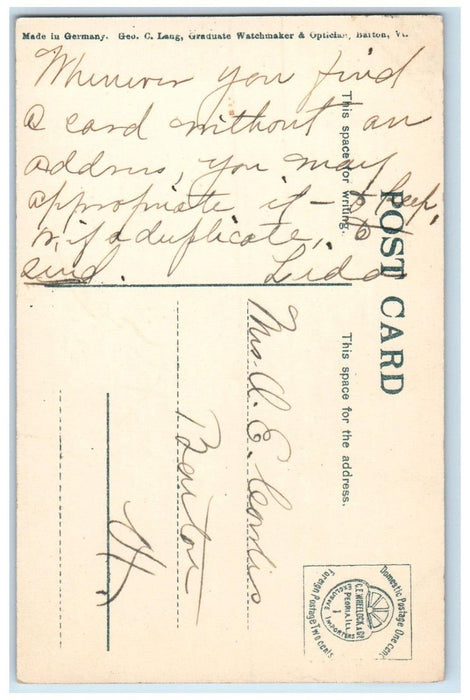 Made in Germany. Geo. C. Lang, Graduate Watchmaker & Optician, Barton, Vt.
Whenever you find
a card without an
address, you may
appropriate it - to keep,
or, if a duplicate, to
send. Lida
POST CARD
This space for writing.
This space for the address.
Mrs. A. E.
Barton
Vt.
Domestic Postage One Cent
Foreign Postage Two Cents
C.E. WHEELOCK & CO.
PEORIA, ILL.
IMPORTERS